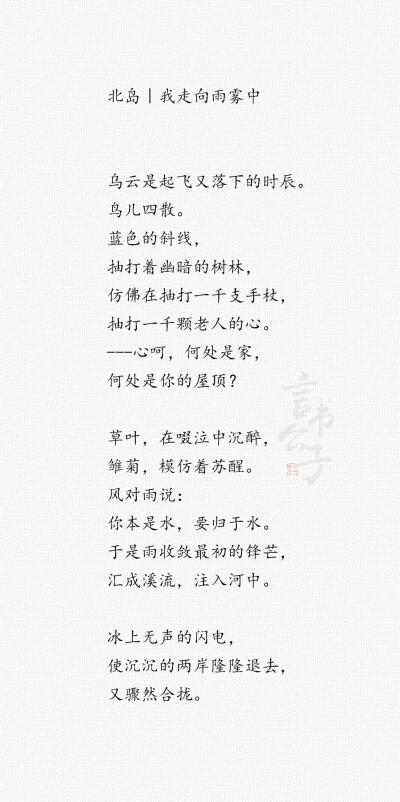 北岛｜我走向雨雾中
乌云是起飞又落下的时辰。
鸟儿四散。
蓝色的斜线，
抽打着幽暗的树林，
仿佛在抽打一千支手杖，
抽打一千颗老人的心。
———心呵，何处是家，
何处是你的屋顶？
草叶，在啜泣中沉醉，
雏菊，模仿着苏醒。
风对雨说：
你本是水，要归于水。
于是雨收敛最初的锋芒，
汇成溪流，注入河中。
冰上无声的闪电，
使沉沉的两岸隆隆退去，
又骤然合拢。
言书公子